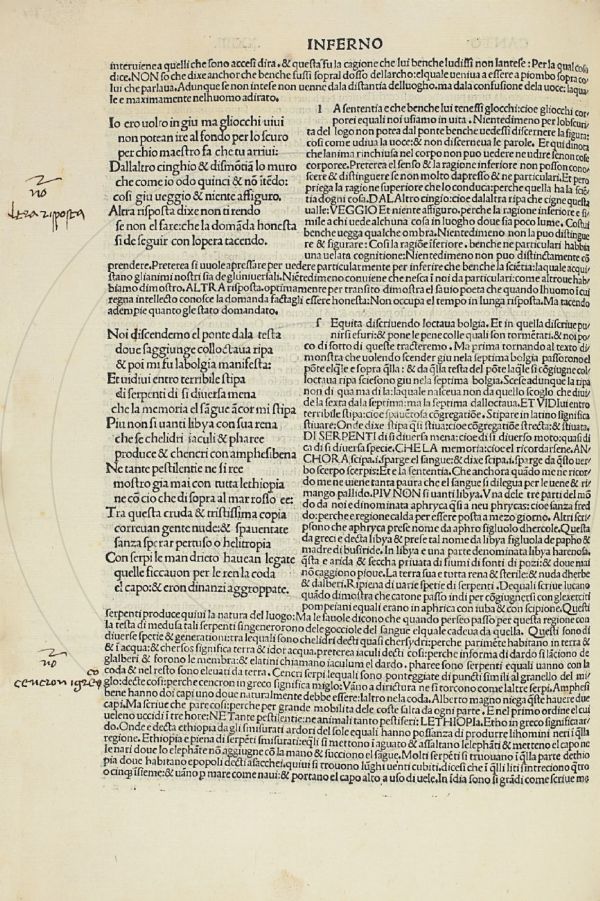 INFERNO
interuiene a quelli che sono accesi dira. & questa fu la cagione che lui benche ludissi non lantese: Per la qual cosa
dice. NON so che dixe anchor che benche fussi sopral dosso dellarcho: elquale ueniua a essere a piombo sopra co
lui che parlaua. Adunque se non intese non uenne dalla distantia delluogho. ma dalla confusione dela uoce: laqua
le e maximamente nelhuomo adirato.
Io ero uolto in giu ma gliocchi uiui
non potean ire al fondo per lo scuro
per chio maestro fa che tu arriui
Dallaltro cinghio & dismōtiā lo muro
che come io odo quinci & nō ītēdo:
cosi giu ueggio & niente affiguro.
Altra risposta dixe non ti rendo
se non el fare: che la domāda honesta
si de seguir con lopera tacendo.
l A sententia e che benche lui tenessi glocchi: cioe gliocchi cor
porei equali noi usiamo in uita. Nientedimeno per lobscuri
ta del logo non potea dal ponte benche uedessi discernere la figura:
cosi come udiua la uoce: & non discerneua le parole. Et qui dinota
che lanima rinchiusa nel corpo non puo uedere ne udire senon cose
corporee. Preterea el senso & la ragione inferiore non possono co
scere & distinguere se non molto dapresso & ne particulari. Et pero
priega la ragione superiore che lo conduca: perche quella ha la sciē
tia dogni cosa. DAL Altro cingio: cioe dalaltra ripa che cigne questa
ualle: VEGGIO Et niente affiguro. perche la ragione inferiore e si
mile a chi uede alchuna cosa in luogho doue sia poco lume. Costui
benche uegga qualche ombra. Nientedimeno non la puo distingue
re & figurare: Cosi la ragiōe īferiore. benche ne particulari habbia
una uelata cognitione: Nientedimeno non puo distinctamente cō
prendere. Preterea si uuole apressare per uedere particularmente per inferire che benche la sciētia: laquale acqui
stano glanimi nostri sia degluniuersali. Niētedimeno conuiene che nesca i noi da particulari: come altroue hab
biamo dimostro. ALTRA risposta. optimamente per transito dimostra el sauio poeta che quando lhuomo ī cui
regna intellecto conosce la domanda factagli essere honesta: Non occupa el tempo in lunga risposta. Ma tacendo
adempie quanto gle stato domandato.
Noi discendemo el ponte dala testa
doue saggiunge collo ctaua ripa
& poi mi fu labolgia manifesta:
Et uidiui entro terribile stipa
di serpenti di si diuersa mena
che la memoria el sāgue ācor mi stipa
Piu non si uanti libya con sua rena
che se chelidri iaculi & pharee
produce & chencri con amphesibena
Ne tante pestilentie ne si ree
mostro gia mai con tutta lethiopia
ne cō cio che di sopra al mar rosso ee:
Tra questa cruda & tristissima copia
correuan gente nude: & spauentate
sanza sperar pertuso o helitropia
Con serpi le man drieto hauean legate
quelle ficcauon per le ren la coda
el capo: & eron dinanzi aggroppate.
f Equita discriuendo loctaua bolgia. Et in quella discriue pu
nirsi efuri: & pone le pene colle quali son tormētati. & noi po
co di sotto di queste tracteremo. Ma prima tornando al texto di
monstra che uolendo scender giu nela septima bolgia passorono el
scripto scerpsis: Et e la sententia. Che anchora quādo me ne ricor
do me ne uiene tanta paura che el sangue si dilegua per le uene & ri
mango pallido. PIV NON si uanti libya. Vna dele tre parti del mō
do da noi e dinominata aphryca
do: perche regione calda per essere posta a mezo giorno. Altri scri
psono che aphryca prese nome da aphro figluolo dhercole. Questa
da greci e decta libya & prese tal nome da libya figluola de papho &
madre di busiride. In libya e una parte denominata libya harenosa.
q̄sta e arida & seccha priuata di fiumi di fonti di pozi: & doue mai
nō caggiono pioue. La terra sua e tutta rena & sterile: & nuda dherbe
& dalberi. Ripiena di uarie spetie di serpenti. Dequali scriue lucano
quādo dimostra che catone passo indi per cōgiugnersi con glexerciti
pompeiani equali erano in aphrica con iuba & con scipione. Questi
serpenti produce quiui la natura del luogo: Ma le fauole dicono che quando perseo passo per questa regione con
la testa di medusa tali serpenti singenerorono dele gocciole del sangue elquale cadeua da quella. Questi sono di
diuerse spetie & generationi: tra lequali sono chelidri decti quasi chersydri: perche parimēte habitano in terra &
& ī acqua: & chersos significa terra & idor acqua. preterea iaculi decti cosi perche informa di dardo si lācīono de
glalberi & forono le membra: & elatini chiamano iaculum el dardo. pharee sono serpenti equali uanno con la
coda & nel resto sono eleuati da terra. Cencri serpi equali sono ponteggiate di puncti simili al granello del mi
glio: decte cosi: perche cencron in greco significa miglo: Vāno a dirictura ne si torcono come laltre serpi. Amphesi
bene hanno doi capi uno doue naturalmente debbe essere: laltro nela coda. Alberto magno niega q̄ste hauere due
capi. Ma scriue che pare cosi: perche per grande mobilita dele coste salta da ogni parte. E nel primo ordine el cui
ueleno uccidi ī tre hore: NE Tante pestilentie: ne animali tanto pestiferi: LETHIOPIA. Etho in greco significa ar
do. Onde e decta ethiopia da gli smisurati ardori del sole equali hanno possanza di produrre lihomini neri ī q̄lla
regione. Ethiopia e piena di serpēti smisurati: eq̄li si mettono ī aguato & assaltano lelephāti & metteno el capo ne
le nari doue lo elephāte nō aggiugne cō la mano & succiono el sāgue. Molti serpēti si truouano ī q̄lla parte dethio
pia doue habitano epopoli decti asachei. quiui si truouono lūghi uenti cubiti. dicesi che ī q̄lli liti sintreciono q̄tro
o cinq; īsieme: & uāno p mare come naui: & portano el capo alto a uso di uele. In īdia sono si grādi come scriue me
no
altra risposta
no
cencron igreco